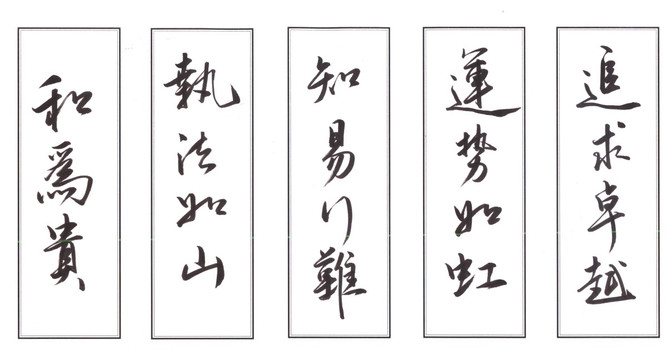 追求卓越
運势如虹
知易行難
執法如山
和爲貴